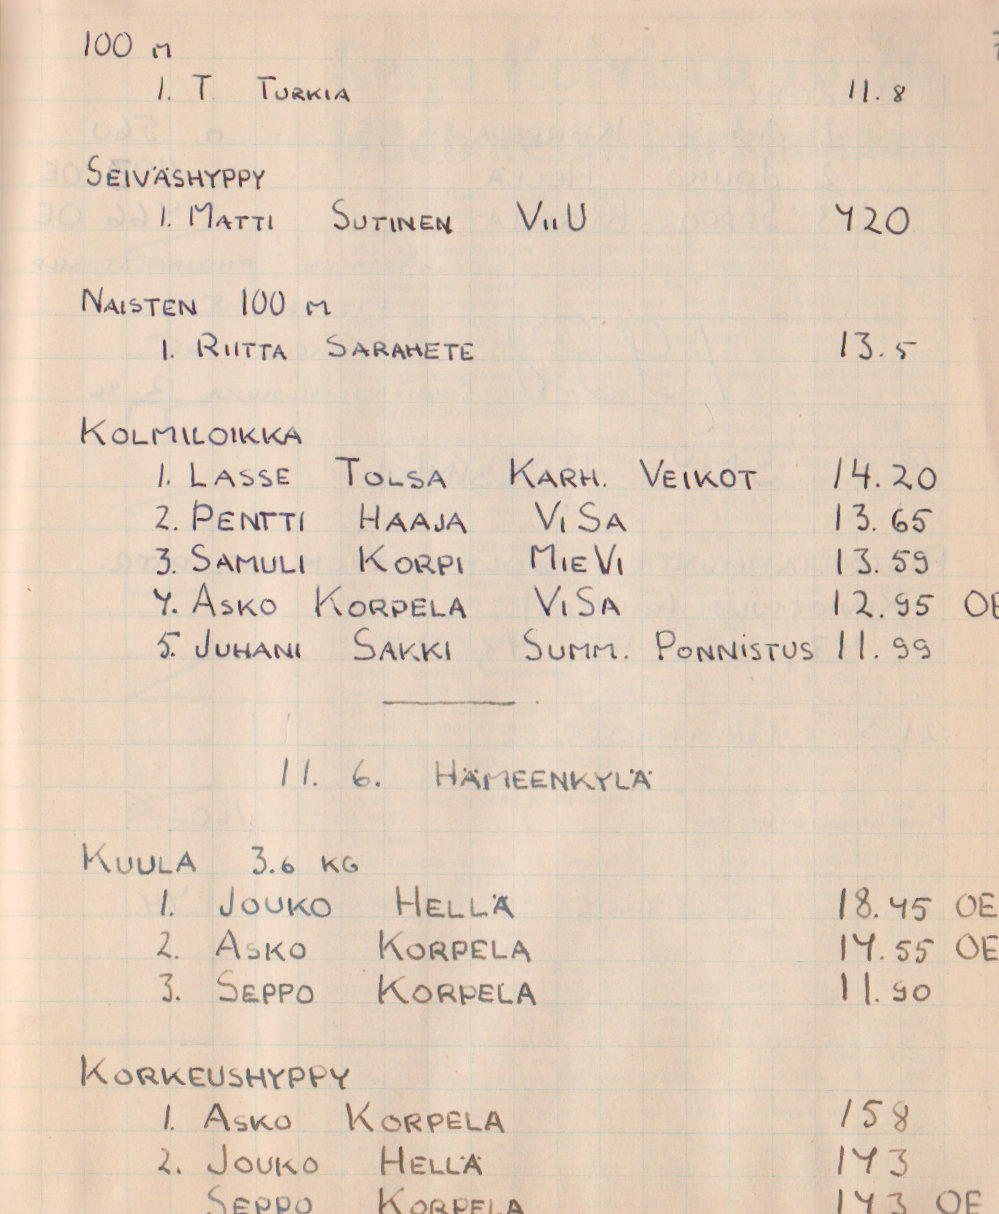 100 m
1. T. Turkia 11.8
Seiväshyppy
1. Matti Sutinen ViiU 420
Naisten 100 m
1. Riitta Sarahete 13.5
Kolmiloikka
1. Lasse Tolsa Karh. Veikot 14.20
2. Pentti Haaja ViSa 13.65
3. Samuli Korpi MieVi 13.59
4. Asko Korpela ViSa 12.95 OE
5. Juhani Sakki Summ. Ponnistus 11.99
11. 6. Hämeenkylä
Kuula 3.6 kg
1. Jouko Hellä 18.45 OE
2. Asko Korpela 14.55 OE
3. Seppo Korpela 11.90
Korkeushyppy
1. Asko Korpela 158
2. Jouko Hellä 143
Seppo Korpela 143 OE